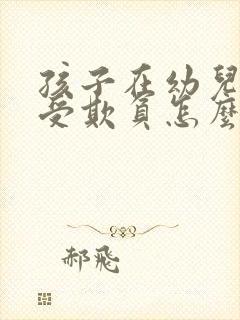 孩子在幼兒
受欺負怎麼
郝飛